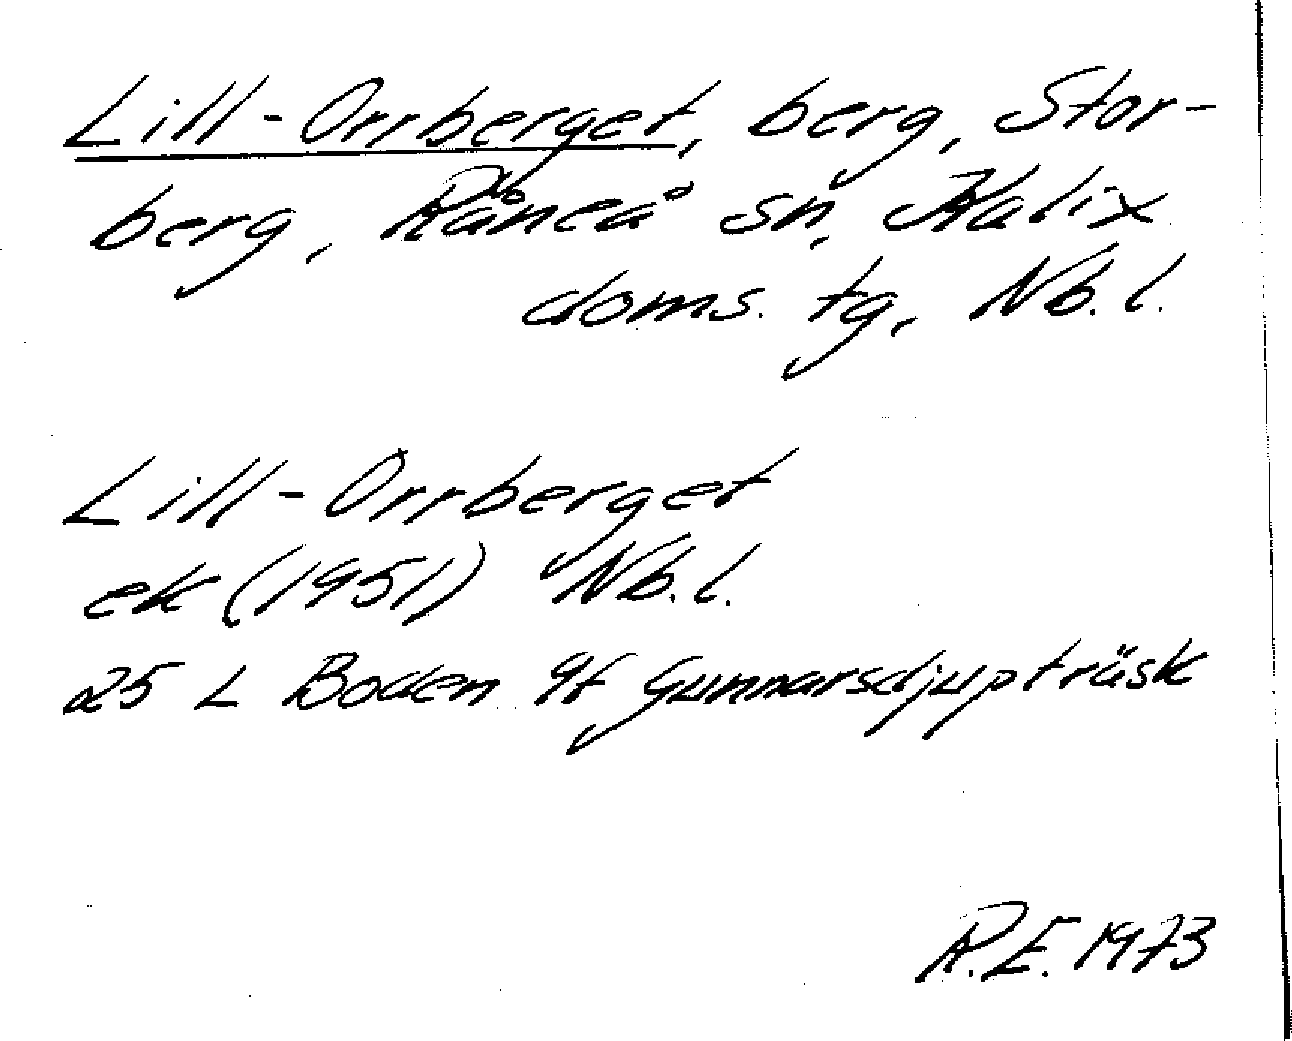 Lill-Orrberget, berg, Stor-
berg, Råneå sn, Kalix
doms. tg, Nb. l.
Lill-Orrberget
ek (1951) Nb. l.
25 L Boden 9f Gunnarsdjupträsk
R.E. 1973